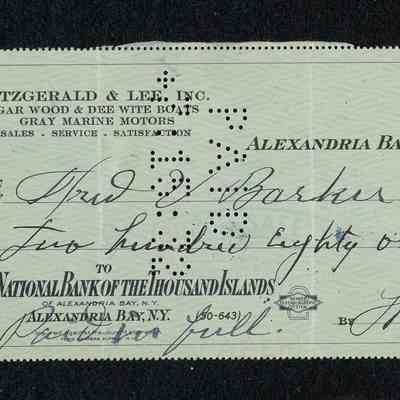 TZGERALD & LEE, INC.
GAR WOOD & DEE WITE BOATS
GRAY MARINE MOTORS
SALES - SERVICE - SATISFACTION
ALEXANDRIA BA
Fred V Barker
Two hundred Eighty o
PAID
TO
NATIONAL BANK OF THE THOUSAND ISLANDS
OF ALEXANDRIA BAY, N.Y.
ALEXANDRIA BAY, N.Y. (50-643)
By
Paid in full.